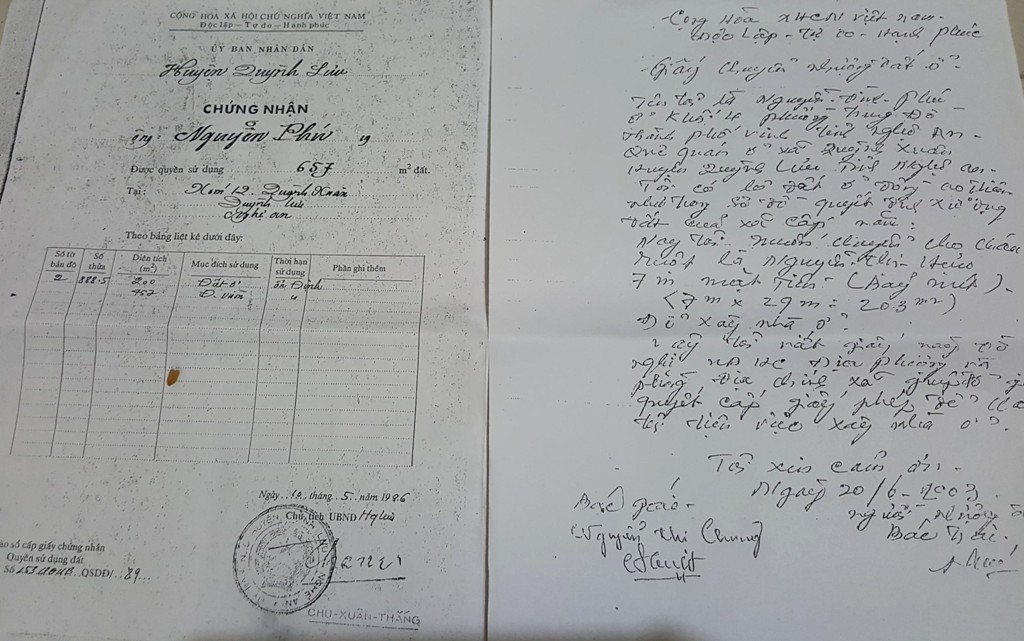 CỘNG HÒA XÃ HỘI CHỦ NGHĨA VIỆT NAM
Độc lập - Tự do - Hạnh phúc
ỦY BAN NHÂN DÂN
Huyện Quỳnh Lưu
CHỨNG NHẬN
ông: Nguyễn Phú
Được quyền sử dụng 657 m² đất.
Tại: Xóm 12. Quỳnh Xuân
Quỳnh Lưu
Nghệ an
Theo bảng liệt kê dưới đây:
Số tờ bản đồ Số thửa Diện tích (m²) Mục đích sử dụng Thời hạn sử dụng Phần ghi thêm
2 888.5 200 Đất ở ổn Định
457 Đ. vườn "
Ngày..10.tháng..5.năm 1996
Chủ tịch UBND Huyện
CHU-XUÂN-THẮNG
vào sổ cấp giấy chứng nhận
Quyền sử dụng đất
Số QSDĐ/..89..
Cộng Hòa XHCN việt nam.
Độc Lập - Tự do - Hạnh phúc
Giấy chuyển nhượng đất ở.
Tên tôi là Nguyễn Đình Phú
ở Khối 4 phường Trung Đô
thành phố vinh tỉnh nghệ An.
Quê quán ở xã Quỳnh Xuân
Huyện Quỳnh Lưu tỉnh Nghệ an.
Tôi có lô đất ở đồng
như trong sổ đỏ quyết
đất của xã cấp năm.
Nay tôi muốn chuyển cho cháu
ruột là Nguyễn Thị
7m mặt Tiền (bảy mét).
(7m x 29m = 203m²)
Để xây nhà ở.
Vậy tôi viết giấy này đề
nghị địa phương và
phòng địa chính xã giúp đỡ
quyết cấp giấy phép để
tôi tiện việc xây nhà ở.
Tôi xin cảm ơn.
Ngày 20/6-2003
Bác gái.
Nguyễn Thi Chung
người nhượng
Bác